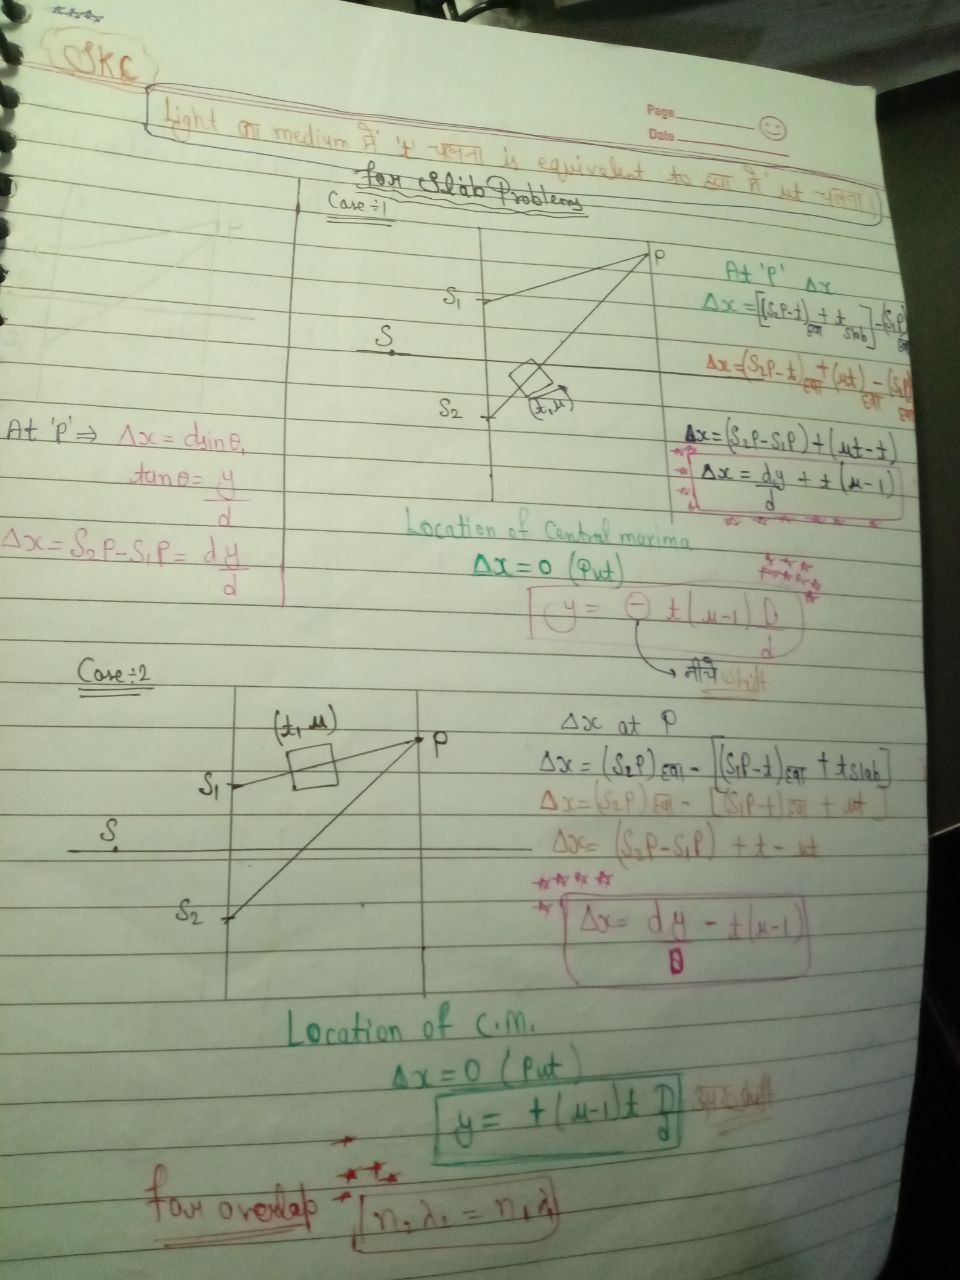 SKC
Page
Date
Light का medium में 't' चलना is equivalent to हवा में μt चलना।
for Slab Problems
Case÷1
S₁
P
S
S₂
(t, μ)
At 'P' Δx
Δx = [(S₂P-t)हवा + t slab] - (S₁P)हवा
Δx = (S₂P-t)हवा + (μt)हवा - (S₁P)हवा
Δx = (S₂P-S₁P) + (μt-t)
Δx = dy/d + t(μ-1)
At 'P' ⇒ Δx = dsinθ,
tanθ = y/d
Δx = S₂P-S₁P = dy/d
Location of Central maxima
Δx = 0 (Put)
y = - t(μ-1) D/d
नीचे shift
Case÷2
(t, μ)
P
S₁
S
S₂
Δx at P
Δx = (S₂P)हवा - [(S₁P-t)हवा + t slab]
Δx = (S₂P)हवा - [(S₁P-t)हवा + μt]
Δx = (S₂P-S₁P) + t - μt
Δx = dy/D - t(μ-1)
Location of C.M.
Δx = 0 (Put)
y = +(μ-1)t D/d
shift
for overlap